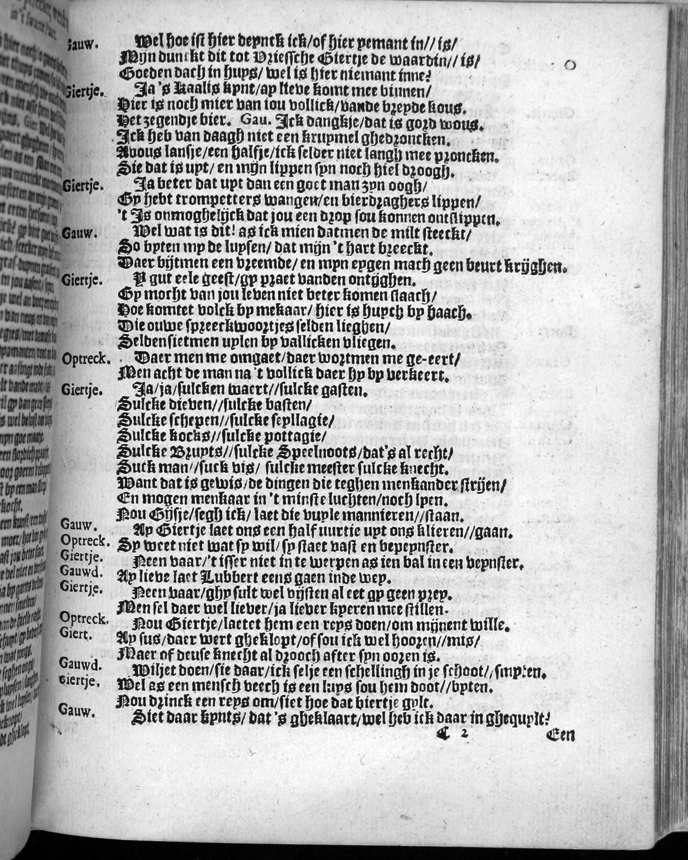 Gauw. Wel hoe ist hier deynck ick/of hier yemant in// is/
Mijn dunckt dit tot Vriessche Giertje de waardin// is/
Goeden dach in huys/ wel is hier niemant inne?
Giertje. Ja 's Kaalis kynt/ay lieve komt mee binnen/
Hier is noch mier van iou vollick/vande breyde kous.
Het zegendje bier. Gau. Ick dangkje/dat is gord wous.
Ick heb van daagh niet een kruymel ghedroncken.
Avous lansje/een halfje/ick selder niet langh mee proncken.
Sie dat is uyt/ en mijn lippen syn noch hiel droogh.
Giertje. Ja beter dat uyt dan een goet man zyn oogh/
Gy hebt trompetters wangen/en bierdraghers lippen/
't Is onmoghelijck dat jou een drop sou konnen ontslippen.
Gauw. Wel wat is dit! as ick mien datmen de milt steeckt/
So byten my de luysen/ dat mijn 't hart breeckt.
Daer bijtmen een vreemde/ en myn eygen mach geen beurt krijghen.
Giertje. Y gut eele geest/gy praet vanden ontijghen.
Gy mocht van jou leven niet beter komen slaach/
Hoe komtet volck by mekaar/ hier is huych by haach.
Die ouwe spreeckwoortjes selden lieghen/
Selden sietmen uylen by vallicken vliegen.
Optreck. Daer men me omgaet/daer wortmen me ge-eert/
Men acht de man na 't vollick daer hy by verkeert.
Giertje. Ja/ja/sulcken waert//sulcke gasten.
Sulcke dieven//sulcke basten/
Sulcke schepen//sulcke seyllagie/
Sulcke kocks//sulcke pottagie/
Sulcke Bruyts//sulcke Speelnoots/dat's al recht/
Suck man//suck vis/ sulcke meester sulcke knecht.
Want dat is gewis/de dingen die teghen menkander strijen/
En mogen menkaar in 't minste luchten/noch lyen.
Nou Gijsje/segh ick/ laet die vuyle mannieren//staan.
Gauw. Ay Giertje laet ons een half uurtie uyt ons klieren//gaan.
Optreck. Sy weet niet wat sy wil/sy staet vast en beveynster.
Giertje. Neen vaar/'t isser niet in te werpen as ien bal in een veynster.
Gauwd. Ay lieve laet Lubbert eens gaen inde wey.
Giertje. Neen vaar/ghy sult wel vijsten al eet gy geen prey.
Men sel daer wel liever/ja liever kyeren mee stillen.
Optreck. Nou Giertje/laetet hem een reys doen/om mijnent wille.
Giert. Ay sus/daer wert gheklopt/of sou ick wel hooren//mis/
Maer of deuse knecht al drooch after syn ooren is.
Gauwd. Wiljet doen/sie daar/ick selje een schellingh in je schoot//smyten.
Giertje. Wel as een mensch veech is een luys sou hem doot//byten.
Nou drinck een reys om/siet hoe dat biertje gylt.
Gauw. Siet daar kynts/ dat 's gheklaart/wel heb ick daar in ghequylt?
C 2 Een